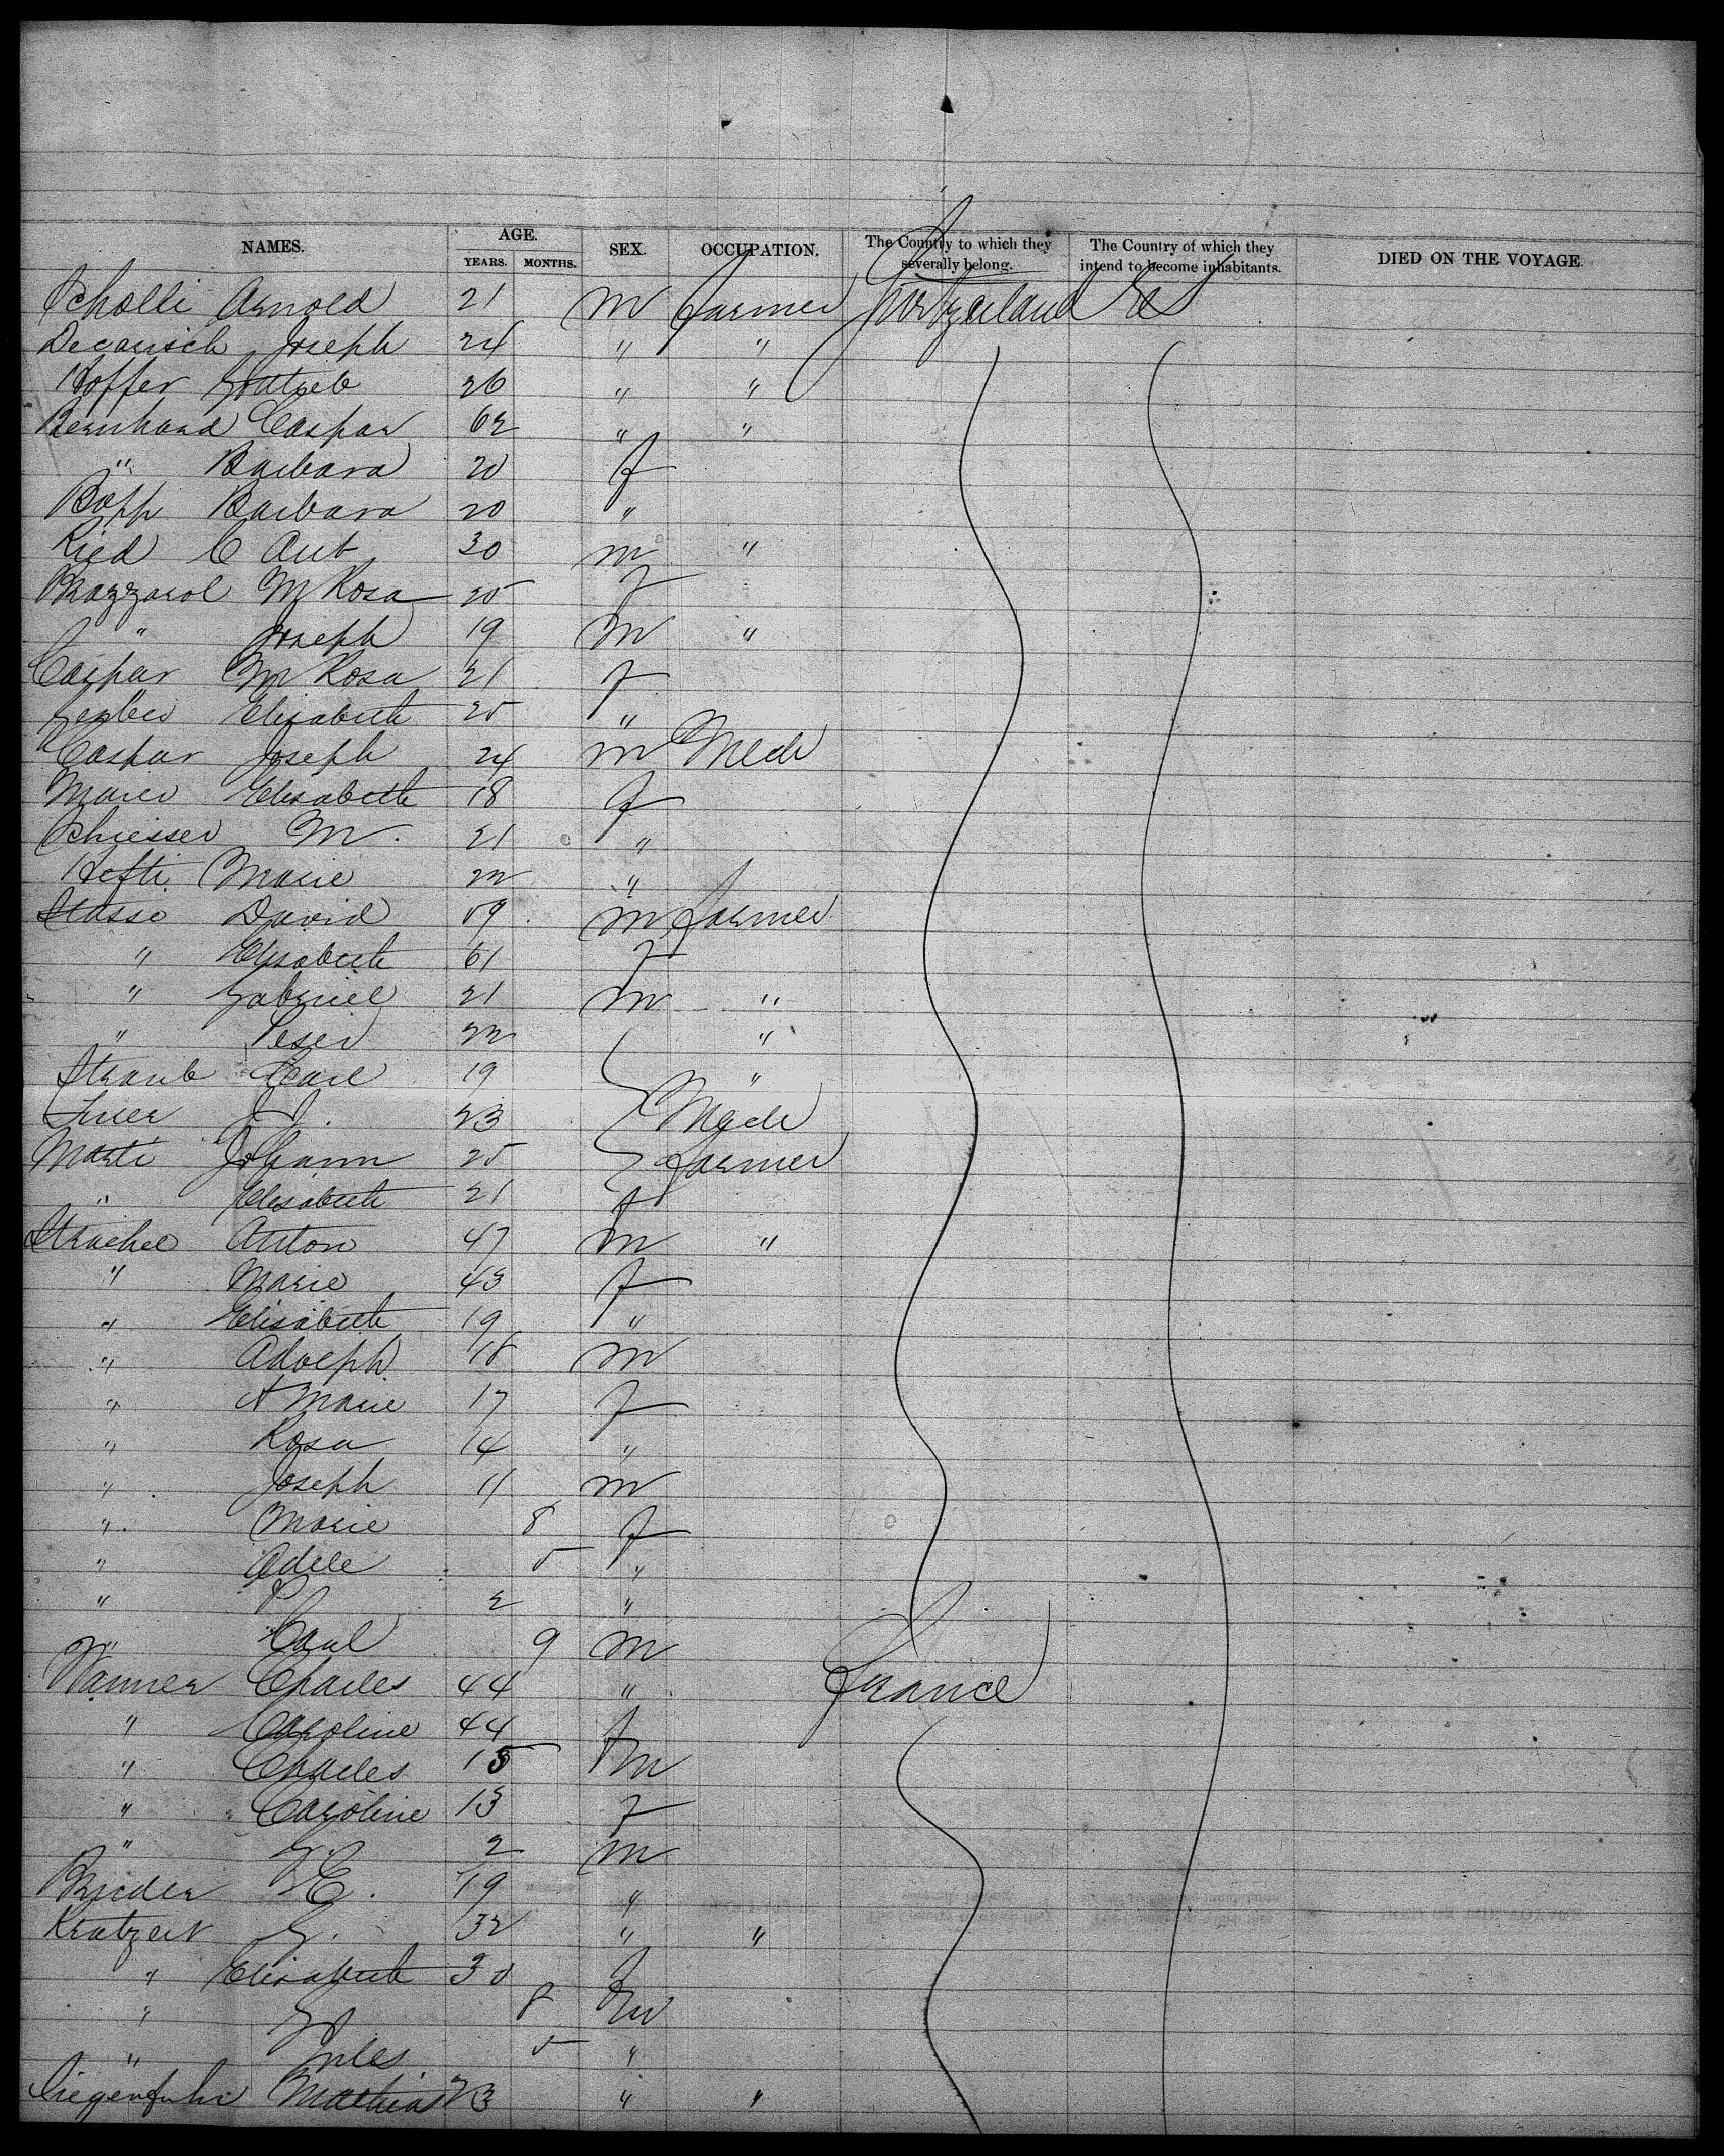 NAMES. AGE. SEX. OCCUPATION. The Country to which they severally belong. The Country of which they intend to become inhabitants. DIED ON THE VOYAGE.
YEARS. MONTHS.
Scholli Arnold 21 m farmer Switzerland US
Joseph 24 " "
Hoffer Gottlieb 26 " "
Bernhard Caspar 62 " "
" Barbara 20 f
Bopp Barbara 20 "
Ried C Ant 30 m "
Brazzarol M Rosa 25 f
" Joseph 19 m "
Caspar M Rosa 21 f
Elisabeth 25 "
Caspar Joseph 24 m Mech
Maier Elisabeth 18 f
Schiesser M. 21 "
Hefti Marie 22 "
Stasse David 59 m farmer
" Elisabeth 61 f
" Gabriel 21 m "
" Peser 22 "
Straub Carl 19 "
J J. 23 Mech
Marti Johann 25 farmer
" Elisabeth 21 f
Strachel Anton 47 m "
" Marie 43 f
" Elisabeth 19 "
" Adolph 18 m
" A Marie 17 f
" Rosa 14 "
" Joseph 11 m
" Marie 8 f
" Adele 5 "
" P 2 "
" Carl 9 m
Wanner Charles 44 " France
" Caroline 44 f
" Charles 15 m
" Caroline 13 f
" G. 2 m
Brieder E. 19 "
Kratzert G. 32 " "
" Elisabeth 30 f
" G 8 m
" Jules 5 "
Ziegenfuhr Mathias 23 " "